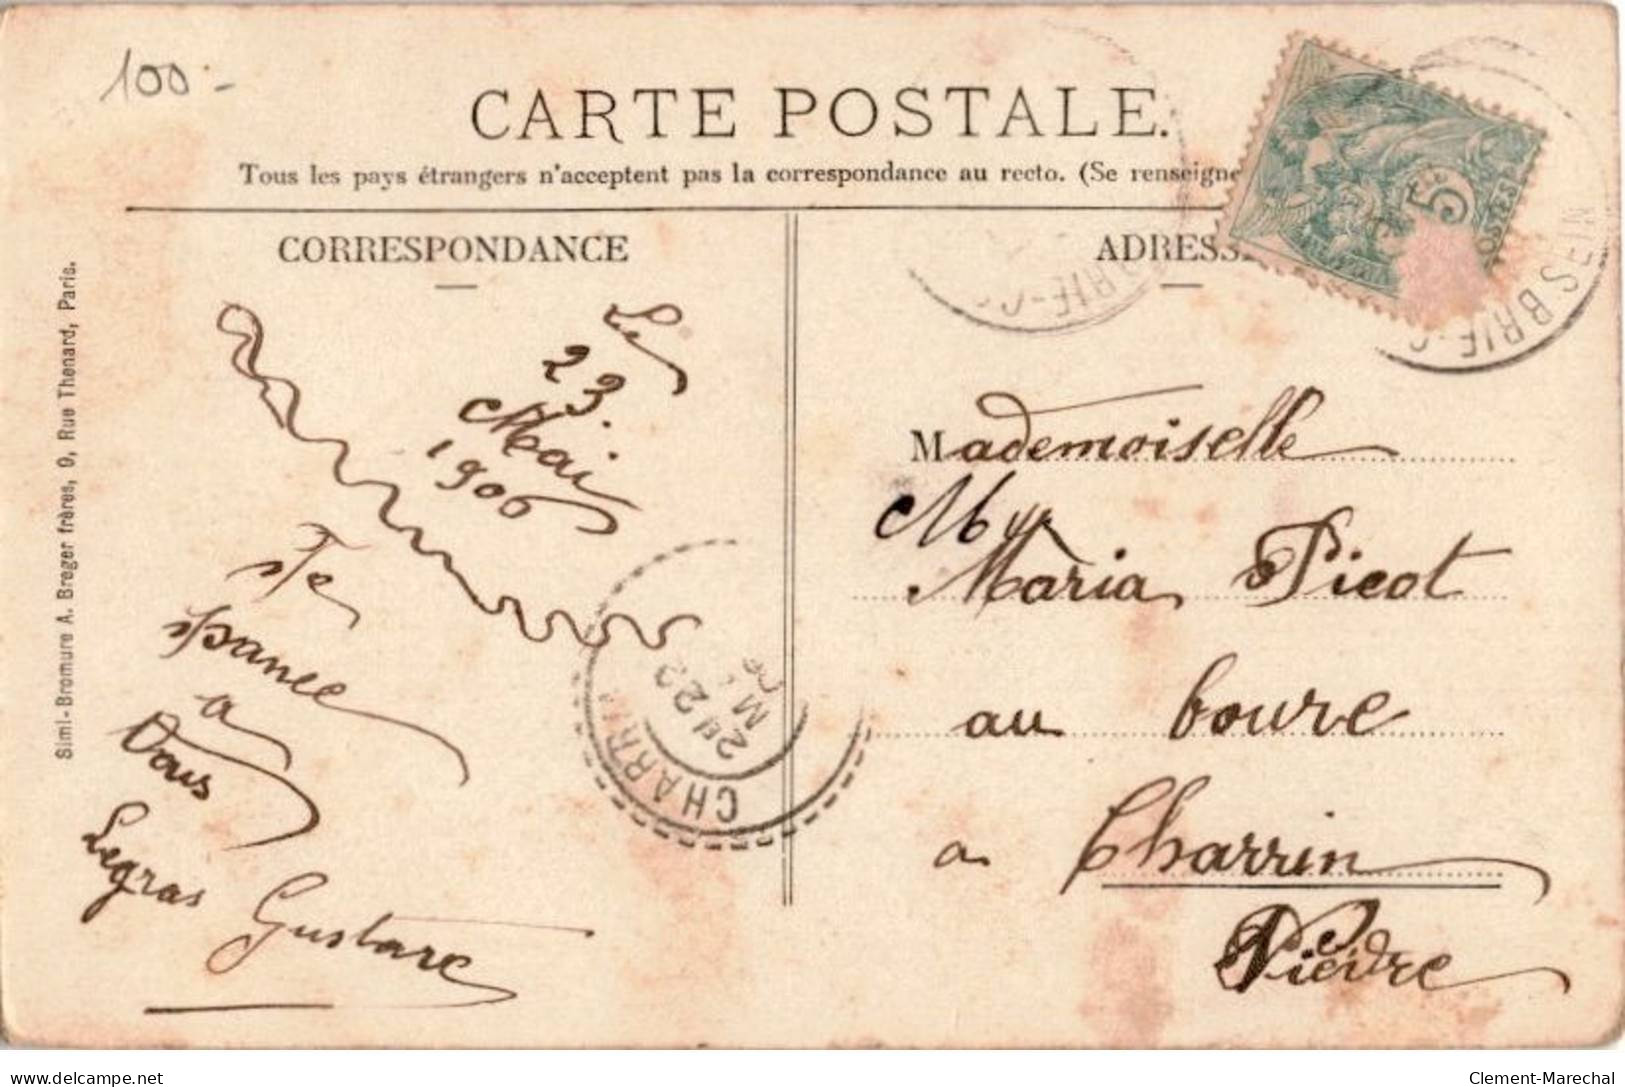 100.-
CARTE POSTALE.
Tous les pays étrangers n'acceptent pas la correspondance au recto. (Se renseigne
CORRESPONDANCE
ADRESS
5
POSTES
BRIE-C
S BRIE-C
SEIN
Le
23
Mai
1906
Je
panse
a
Vous
Legras Gustave
CHARRIN
23
Mademoiselle
Maria Picot
au bourc
a Charrin
Nievre
Simi-Bromure A. Breger frères, 9, Rue Thenard, Paris.
Clement-Marechal